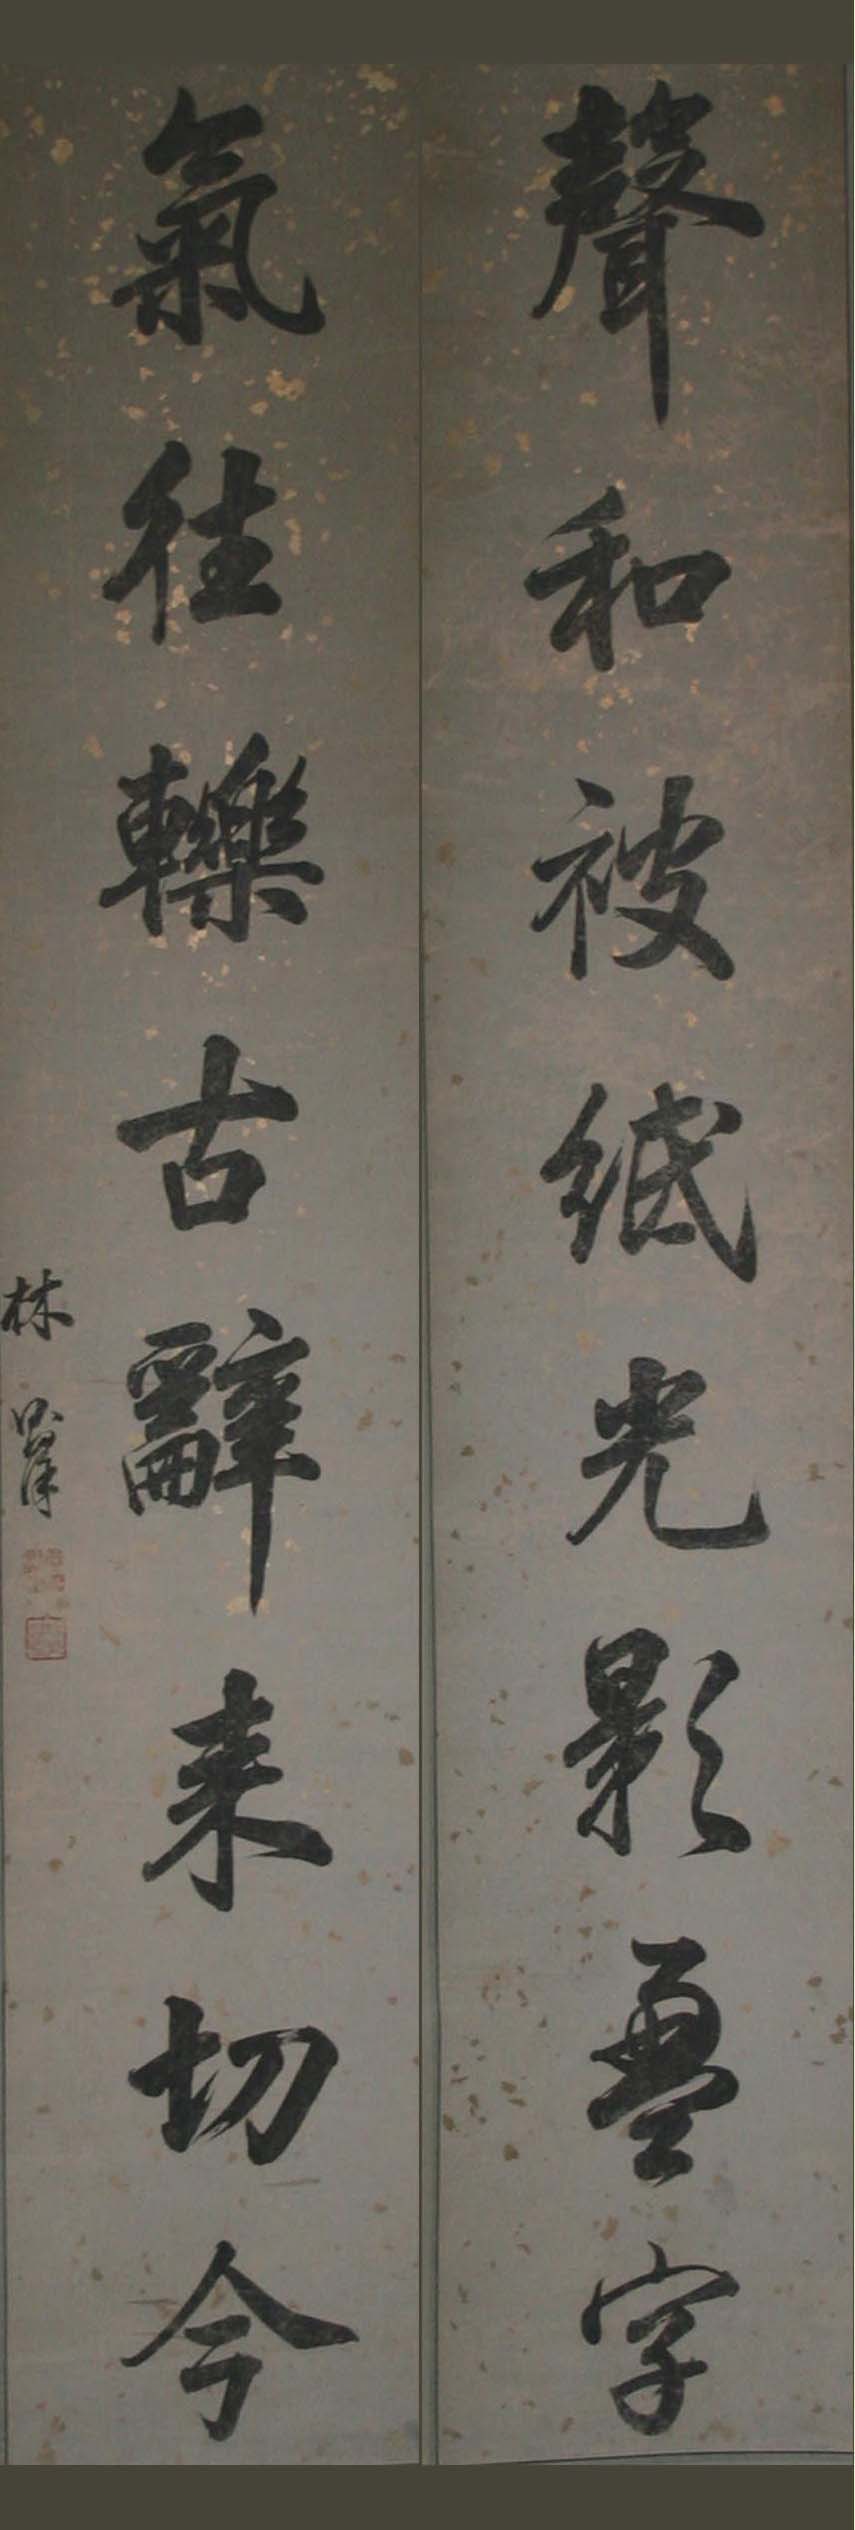 聲和被紙光影盈字
氣往轢古辭来切今
林則徐